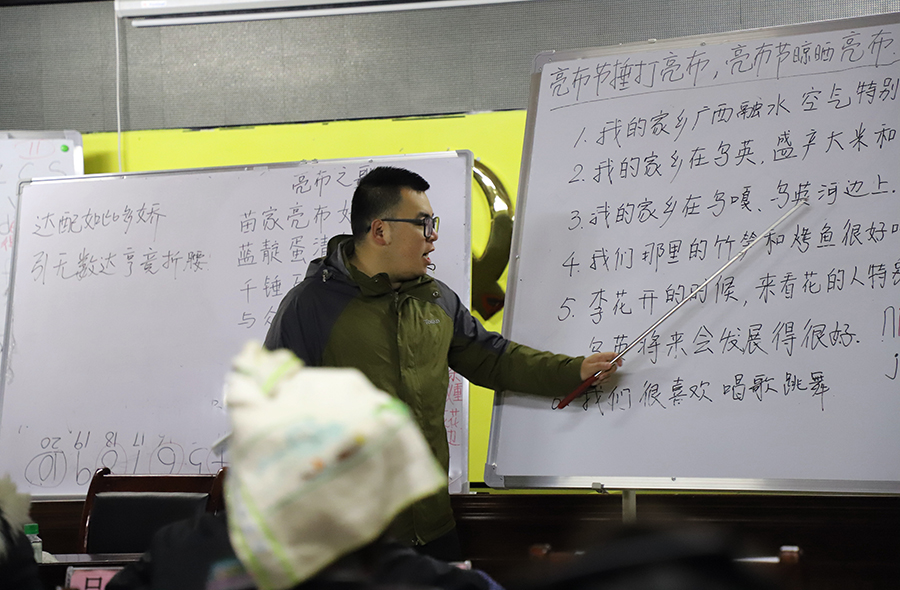 达配如此多娇
引无数达亨竞折腰
亮布之
苗家亮布
蓝靛蛋清
千锤
与众
20. 19. 18 17
亮布节捶打亮布，亮布节晾晒亮布.
1. 我的家乡广西融水 空气特别
2. 我的家乡在乌英，盛产大米和
3. 我的家乡在乌嘎、乌英河边上.
4. 我们那里的竹笋和烤鱼很好
5. 李花开的时候，来看花的人特别
乌英将来会发展得很好.
我们很喜欢 唱歌跳舞